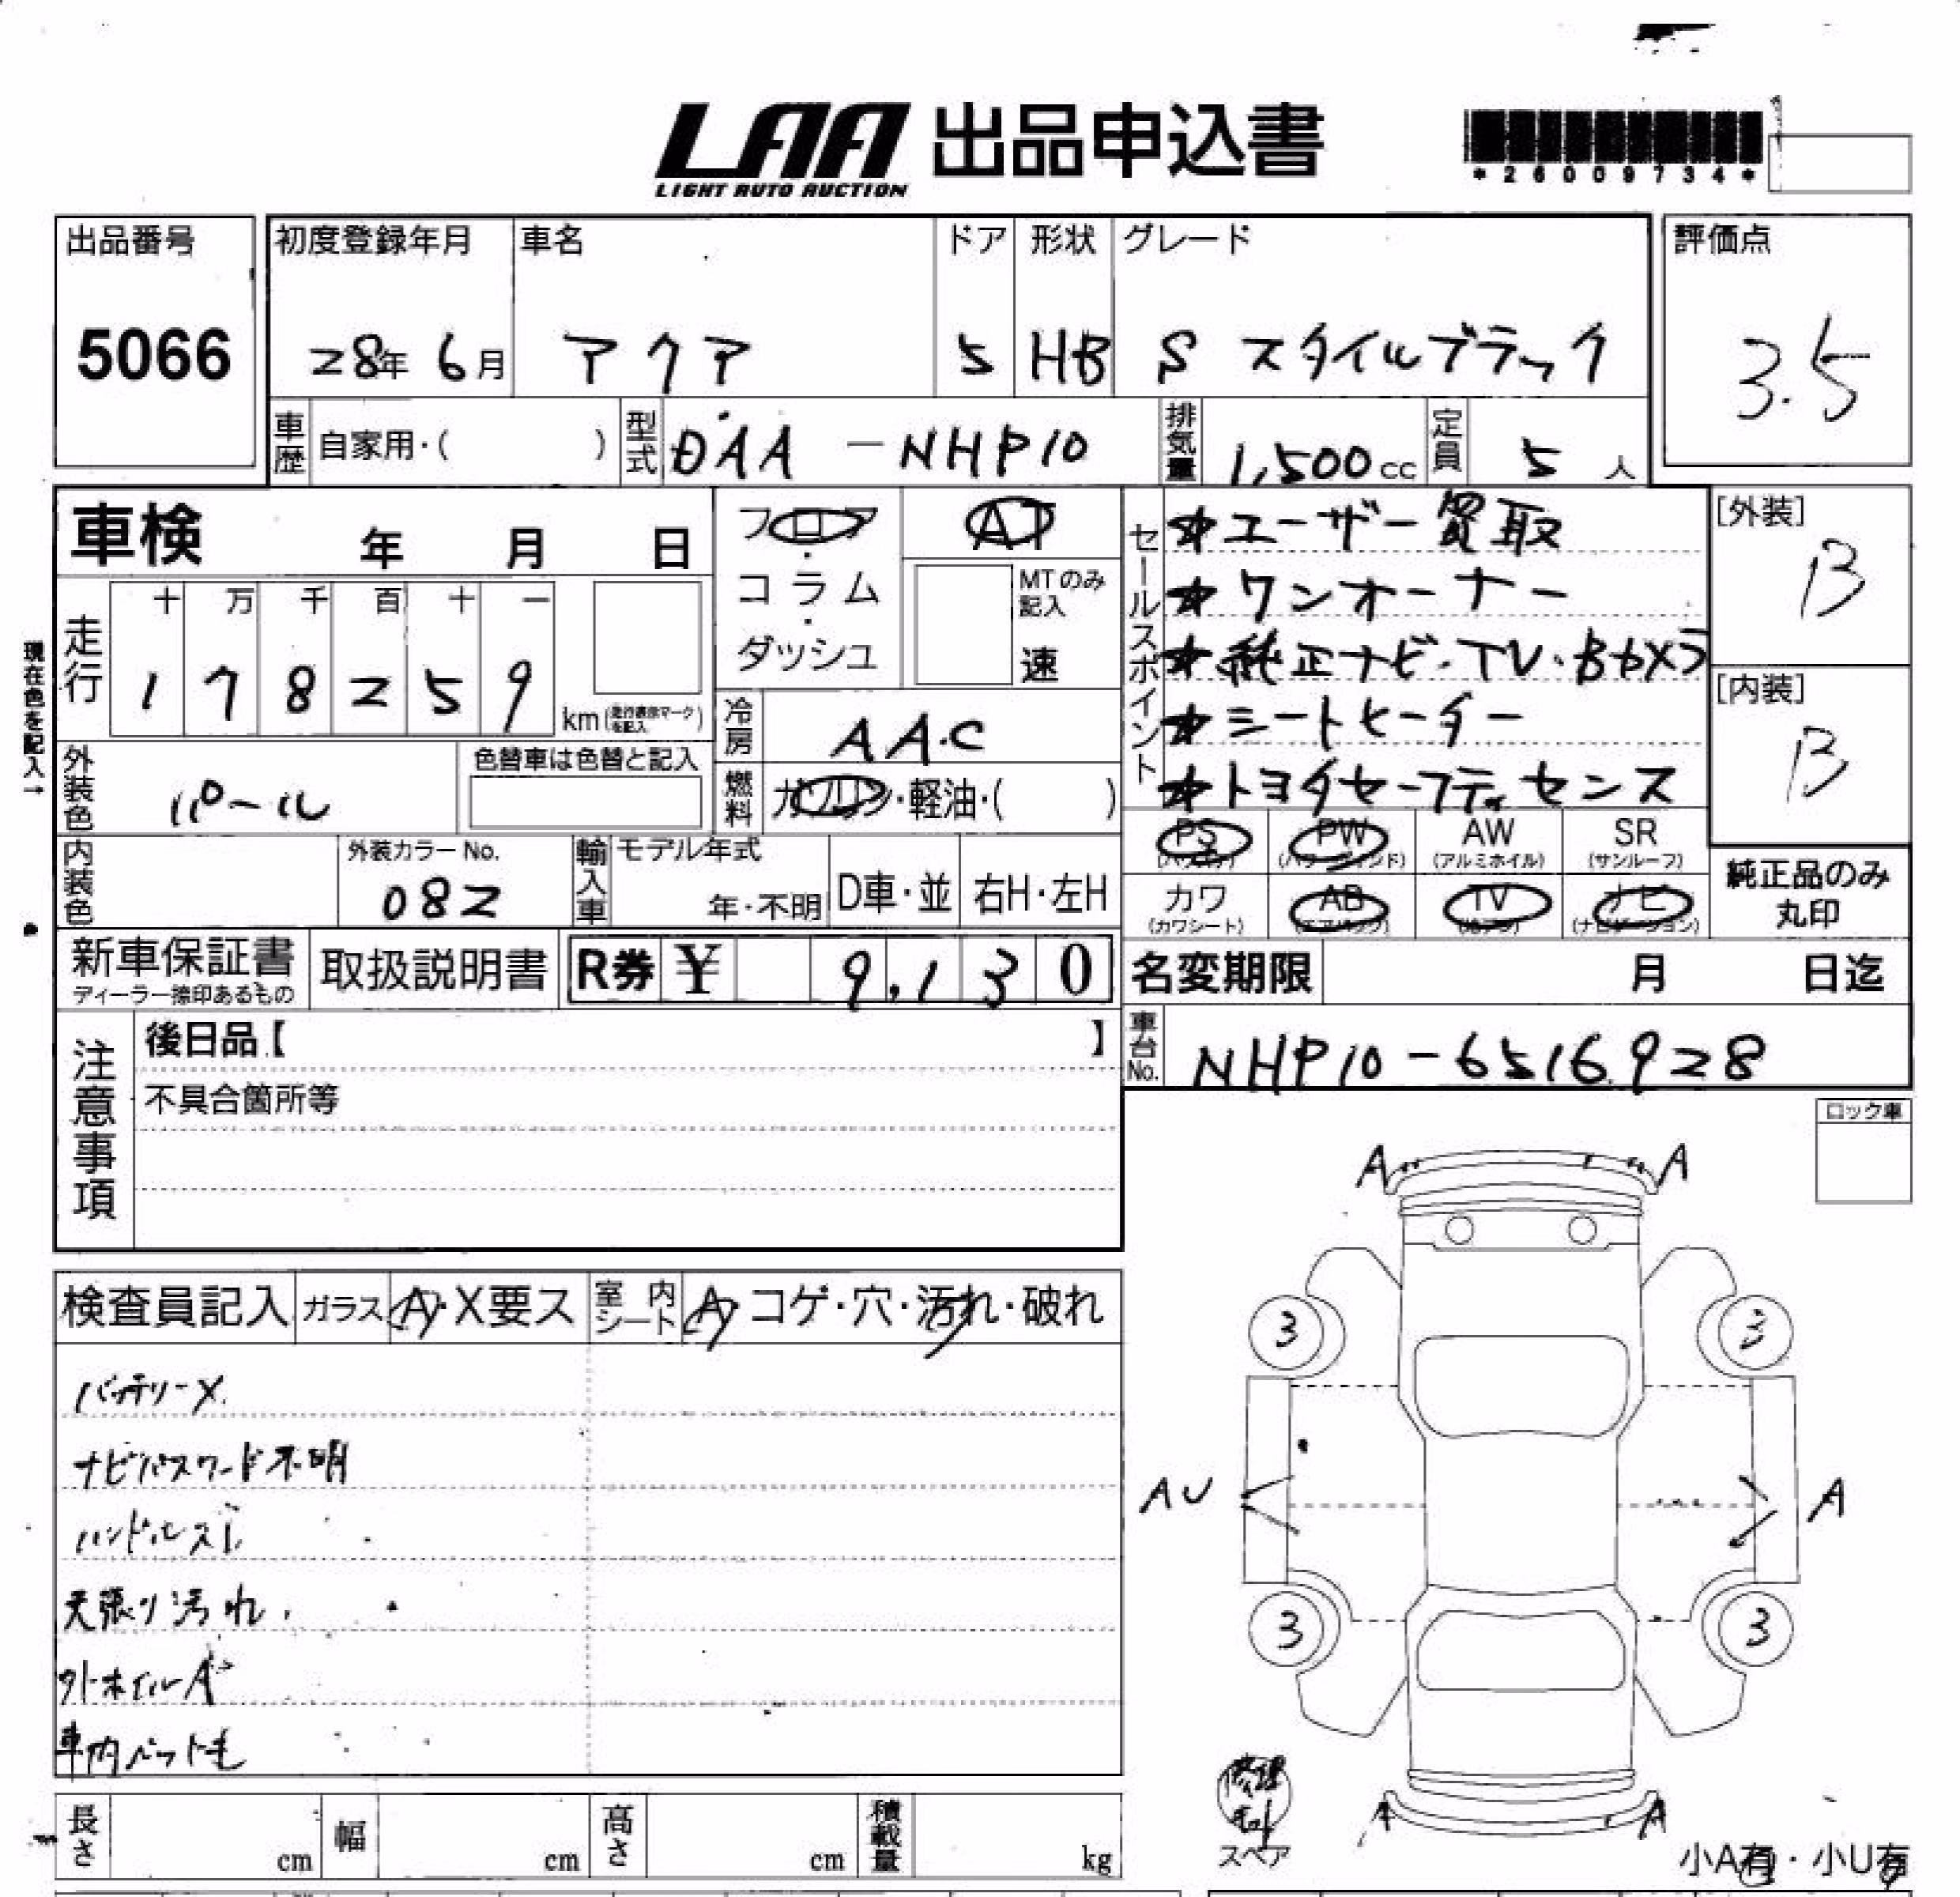 LAA 出品申込書
LIGHT AUTO AUCTION
*26009734*
出品番号 初度登録年月 車名 ドア 形状 グレード 評価点
5066 28年 6月 アクア 5 HB S スタイルブラック 3.5
車歴 自家用・( ) 型式 DAA-NHP10 排気量 1,500cc 定員 5人
車検 年 月 日
フロア・コラム・ダッシュ
AT
MTのみ記入
速
現在色を記入→
走行 十 万 千 百 十 一
1 7 8 2 5 9 km (走行表示マークを記入)
冷房 AAC
燃料 ガソリン・軽油・( )
外装色 パール 色替車は色替と記入
内装色 外装カラーNo. 082
輸入車 モデル年式 年・不明 D車・並 右H・左H
セールスポイント
★ユーザー買取
★ワンオーナー
★純正ナビ・TV・Bカメラ
★シートヒーター
★トヨタセーフティセンス
[外装] B
[内装] B
PS (パワステ) PW (パワーウィンド) AW (アルミホイル) SR (サンルーフ)
カワ (カワシート) AB (エアバッグ) TV ナビ (ナビゲーション)
純正品のみ丸印
新車保証書 ディーラー捺印あるもの 取扱説明書 R券 ¥ 9,130
名変期限 月 日迄
車台No. NHP10-6516928
注意事項
後日品【 】
不具合箇所等
ロック車
検査員記入 ガラス A・X要ス 室内シート A・コゲ・穴・汚れ・破れ
バッテリーX
ナビパスワード不明
ハンドルスレ
天張り汚れ
外ホイルA
車内ペット毛
A A
3 3
AU A
3 3
A A
修理キット
スペア
小A有・小U有
長さ cm 幅 cm 高さ cm 積載量 kg